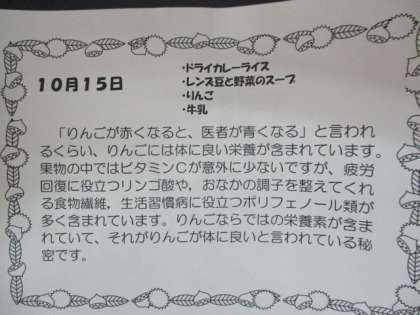 ・ドライカレーライス
・レンズ豆と野菜のスープ
10月15日
・りんご
・牛乳
「りんごが赤くなると、医者が青くなる」と言われ
るくらい、りんごには体に良い栄養が含まれています。
果物の中ではビタミンCが意外に少ないですが、疲労
回復に役立つリンゴ酸や，おなかの調子を整えてくれ
る食物繊維，生活習慣病に役立つポリフェノール類が
多く含まれています。りんごならではの栄養素が含ま
れていて、それがりんごが体に良いと言われている秘
密です。